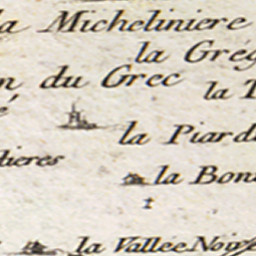 la Micheliniere
la Grég
n du Grec
la T
é
la Piard
lieres
la Bon
la Vallée Noi